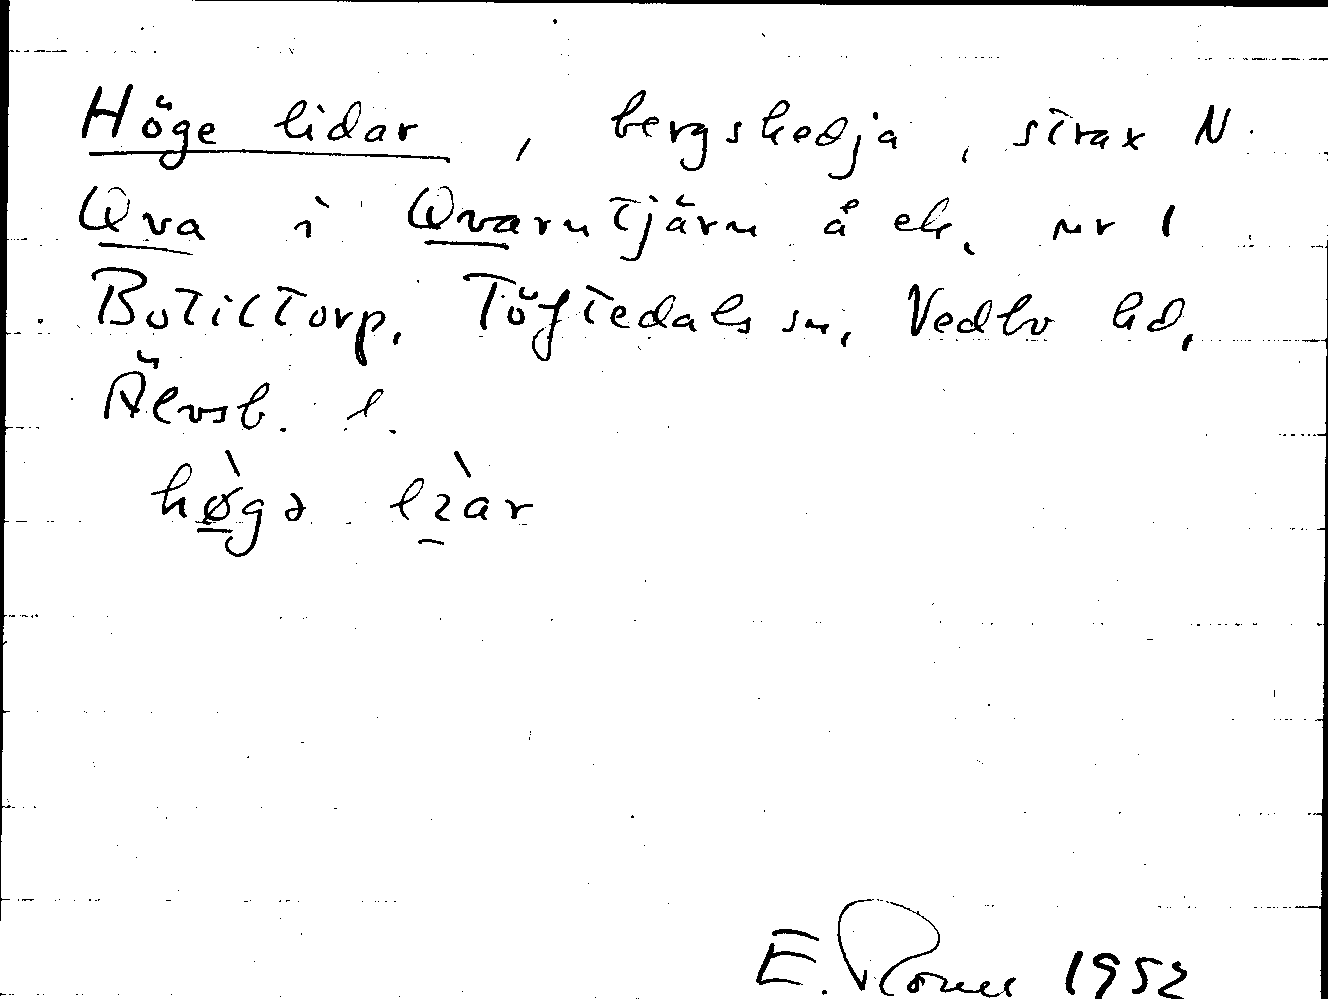 Höge lidar, bergskedja, strax N.
Qva i Qvarntjärn å ek. nr 1
Botilstorp, Töftedals sn, Vedbo hd,
Älvsb. l.
hø̀gə lɩ̀ar
E. 1952